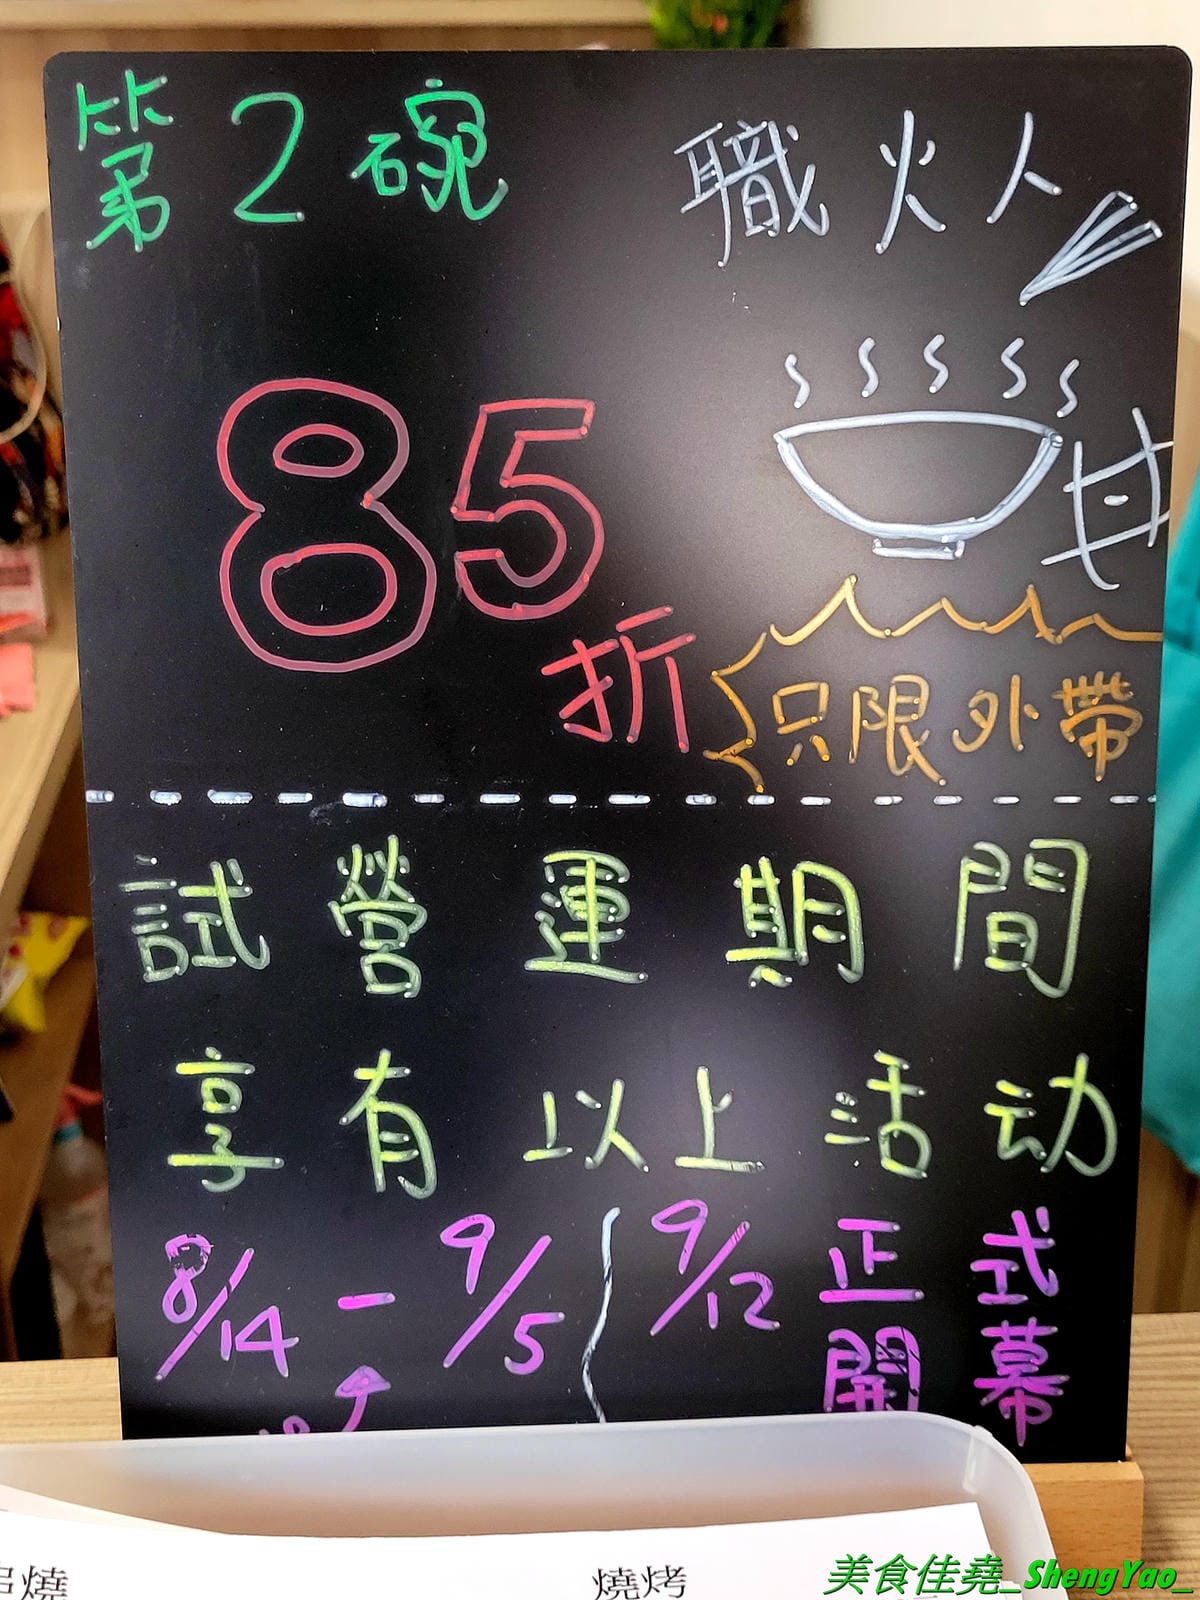 第2碗
職火人
85折
丼
只限外帶
試營運期間
享有以上活动
8/14-9/5
9/12正式
開幕
串燒
燒烤
美食佳堯_ShengYao_